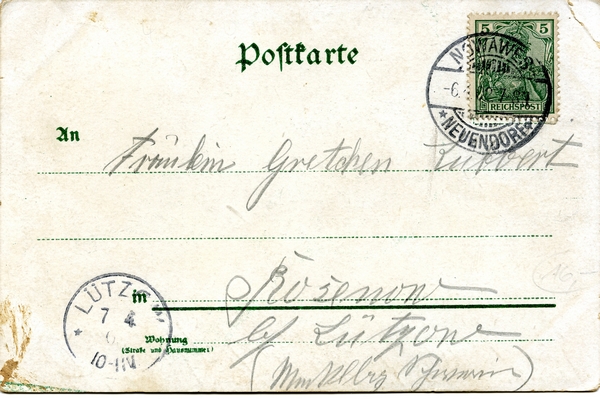 Postkarte
5 5
REICHSPOST
NOWAWES
-6.4.
* NEUENDORF *
An
Fräulein Gretchen Lübbert
in
Rosenow
b/ Lützow
(Mecklbrg Schwerin)
Wohnung
(Straße und Hausnummer)
LÜTZOW
7 4
10-11N